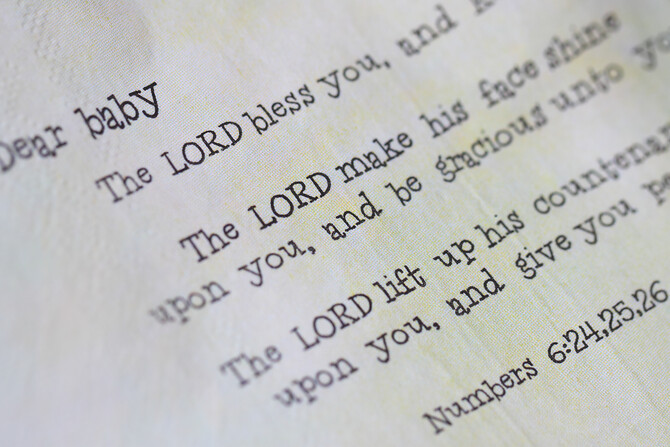 Dear baby
The LORD bless you, and
The LORD make his face shine
upon you, and be gracious unto
The LORD lift up his
upon you, and give you
Numbers 6:24,25,26